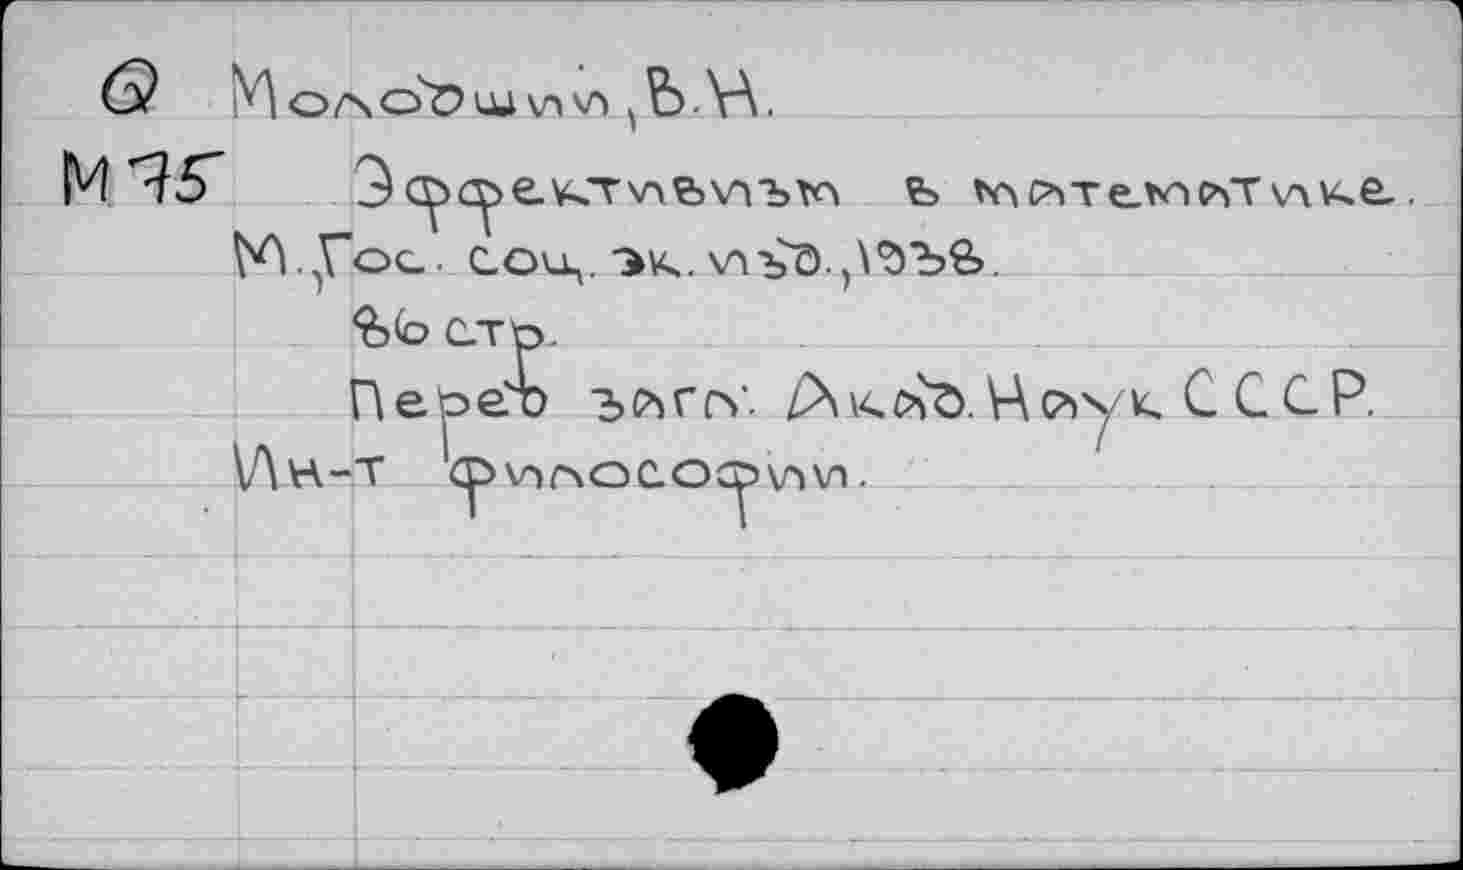 Молодший, В.Н.
М75 Эффективизм в математике.
М., Гос. соц. эк. изд., 1938.
86 стр.
Перед загл: Акад. Наук СССР.
Ин-т философии.